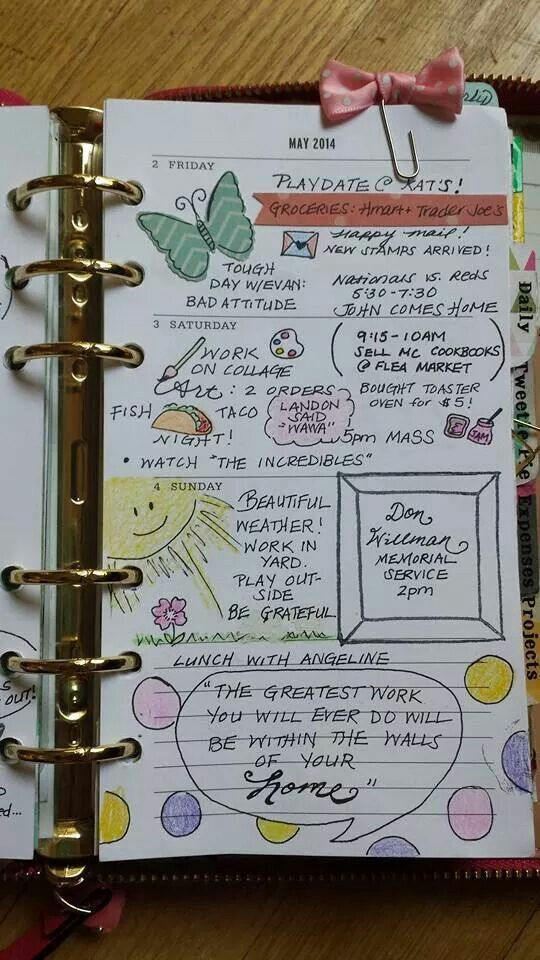 MAY 2014
2 FRIDAY
PLAYDATE @ KAT'S!
GROCERIES: Hmart + Trader Joe's
Happy mail!
NEW STAMPS ARRIVED!
TOUGH
DAY W/EVAN:
BAD ATTITUDE
Nationals vs. Reds
5:30-7:30
JOHN COMES HOME
3 SATURDAY
WORK
ON COLLAGE
9:15-10AM
SELL MC COOKBOOKS
@ FLEA MARKET
Art: 2 ORDERS
BOUGHT TOASTER
OVEN for $5!
FISH TACO
NIGHT!
LANDON
SAID
"WAWA"
5pm MASS
JAM
• WATCH "THE INCREDIBLES"
4 SUNDAY
BEAUTIFUL
WEATHER!
WORK IN
YARD.
PLAY OUT-
SIDE
BE GRATEFUL
Don
Willman
MEMORIAL
SERVICE
2pm
LUNCH WITH ANGELINE
"THE GREATEST WORK
YOU WILL EVER DO WILL
BE WITHIN THE WALLS
OF YOUR
home"
Daily
Tweetie Pie
Expenses
Projects
OUT!